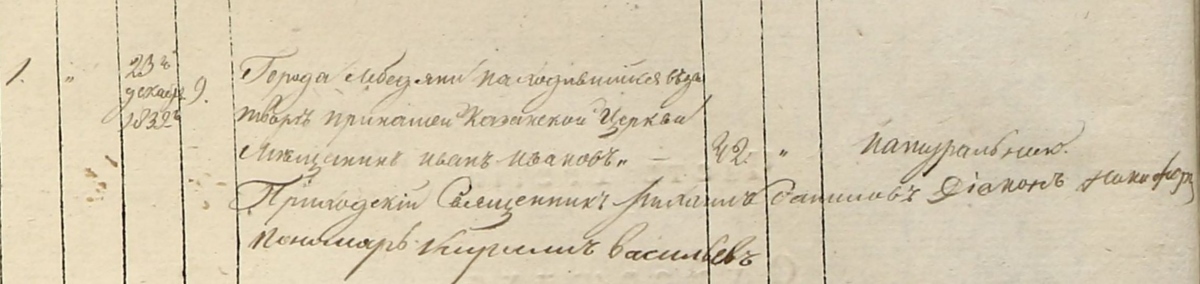 1. " 23ъ декабр 1832ъ 9. Города Лебедяни находившийся въ за
творѣ принашей Казанской Церкви
Мѣщанинъ иванъ ивановъ „ — 42. " натуральною.
Приходскій Священникъ Михаилъ Діаконъ
пономарь Кириллъ васильевъ